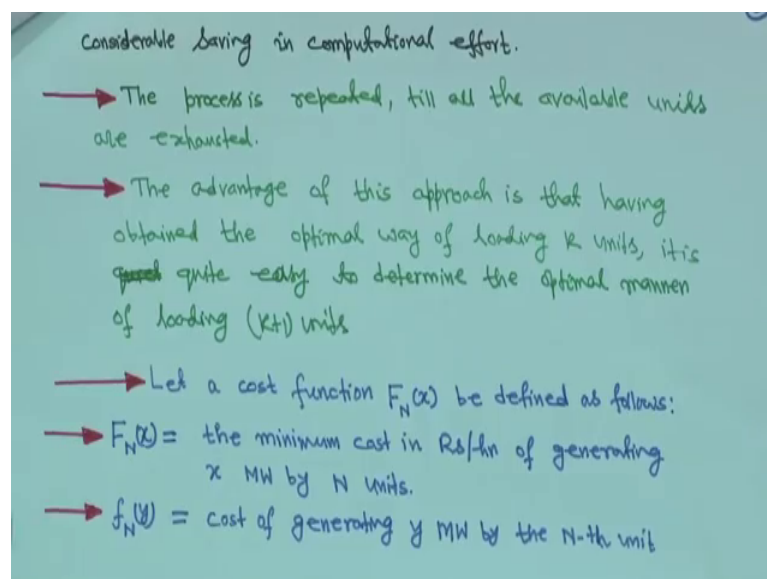 Considerable Saving in computational effort.
The process is repeated, till all the available units
are exhausted.
The advantage of this approach is that having
obtained the optimal way of loading K units, it is
quite easy to determine the optimal manner
of loading (K+1) units
Let a cost function F_N(x) be defined as follows:
F_N(x) = the minimum cost in Rs/hr of generating
x MW by N units.
f_N(y) = cost of generating y MW by the N-th unit